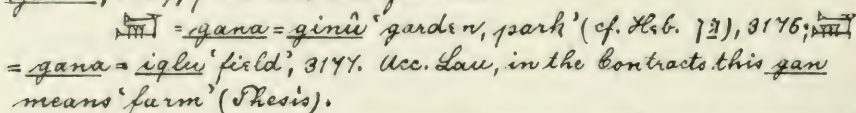 𒃷 = gana = ginû 'garden, park' (cf. Heb. גן), 3176; 𒃷
= gana = iqlu 'field', 3177. Acc. Lau, in the Contracts this gan
means 'farm' (Thesis).